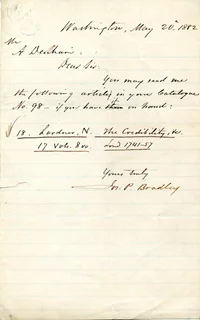 Washington, May 20th, 1882
Mr
A Denham.
Dear Sir
You may send me
the following article, in your Catalogue
No. 98 - if you have them on hand:
18. Lardner, N. The Credibility, &c.
17 Vols. 8vo. Lond 1741-57
Yours truly
Jos. P. Bradley